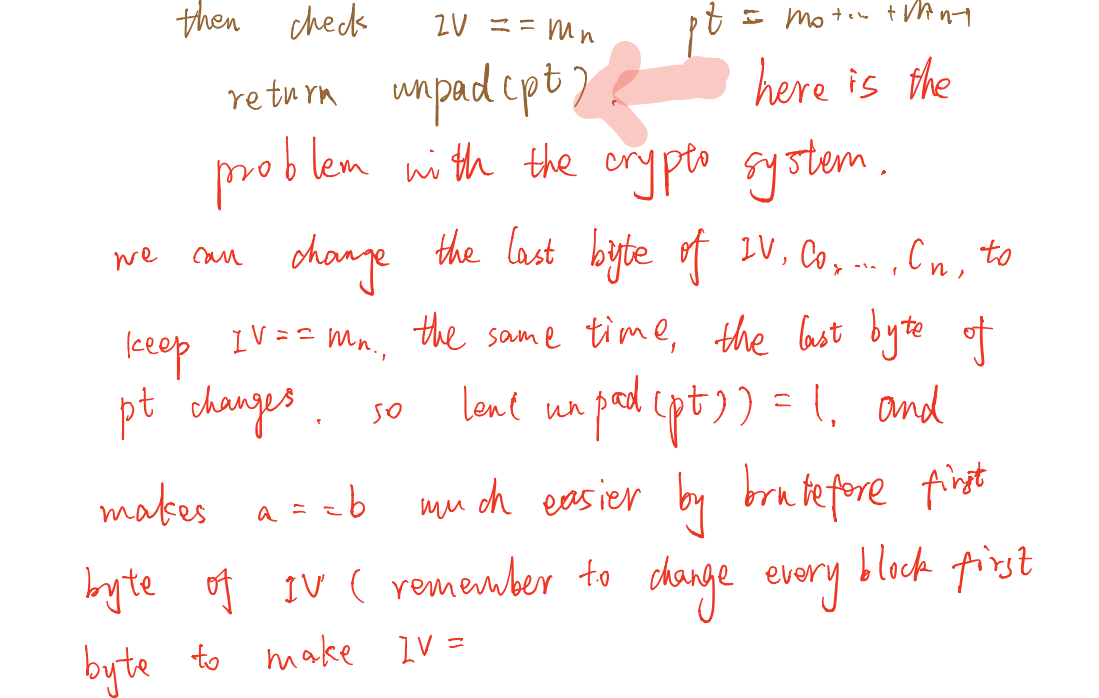 then check IV == mn pt = m0+...+mn-1
return unpad(pt). here is the
problem with the crypto system.
we can change the last byte of IV, C0, ..., Cn, to
keep IV == mn., the same time, the last byte of
pt changes. so len(unpad(pt)) = 1, and
makes a == b much easier by brutefore first
byte of IV (remember to change every block first
byte to make IV =